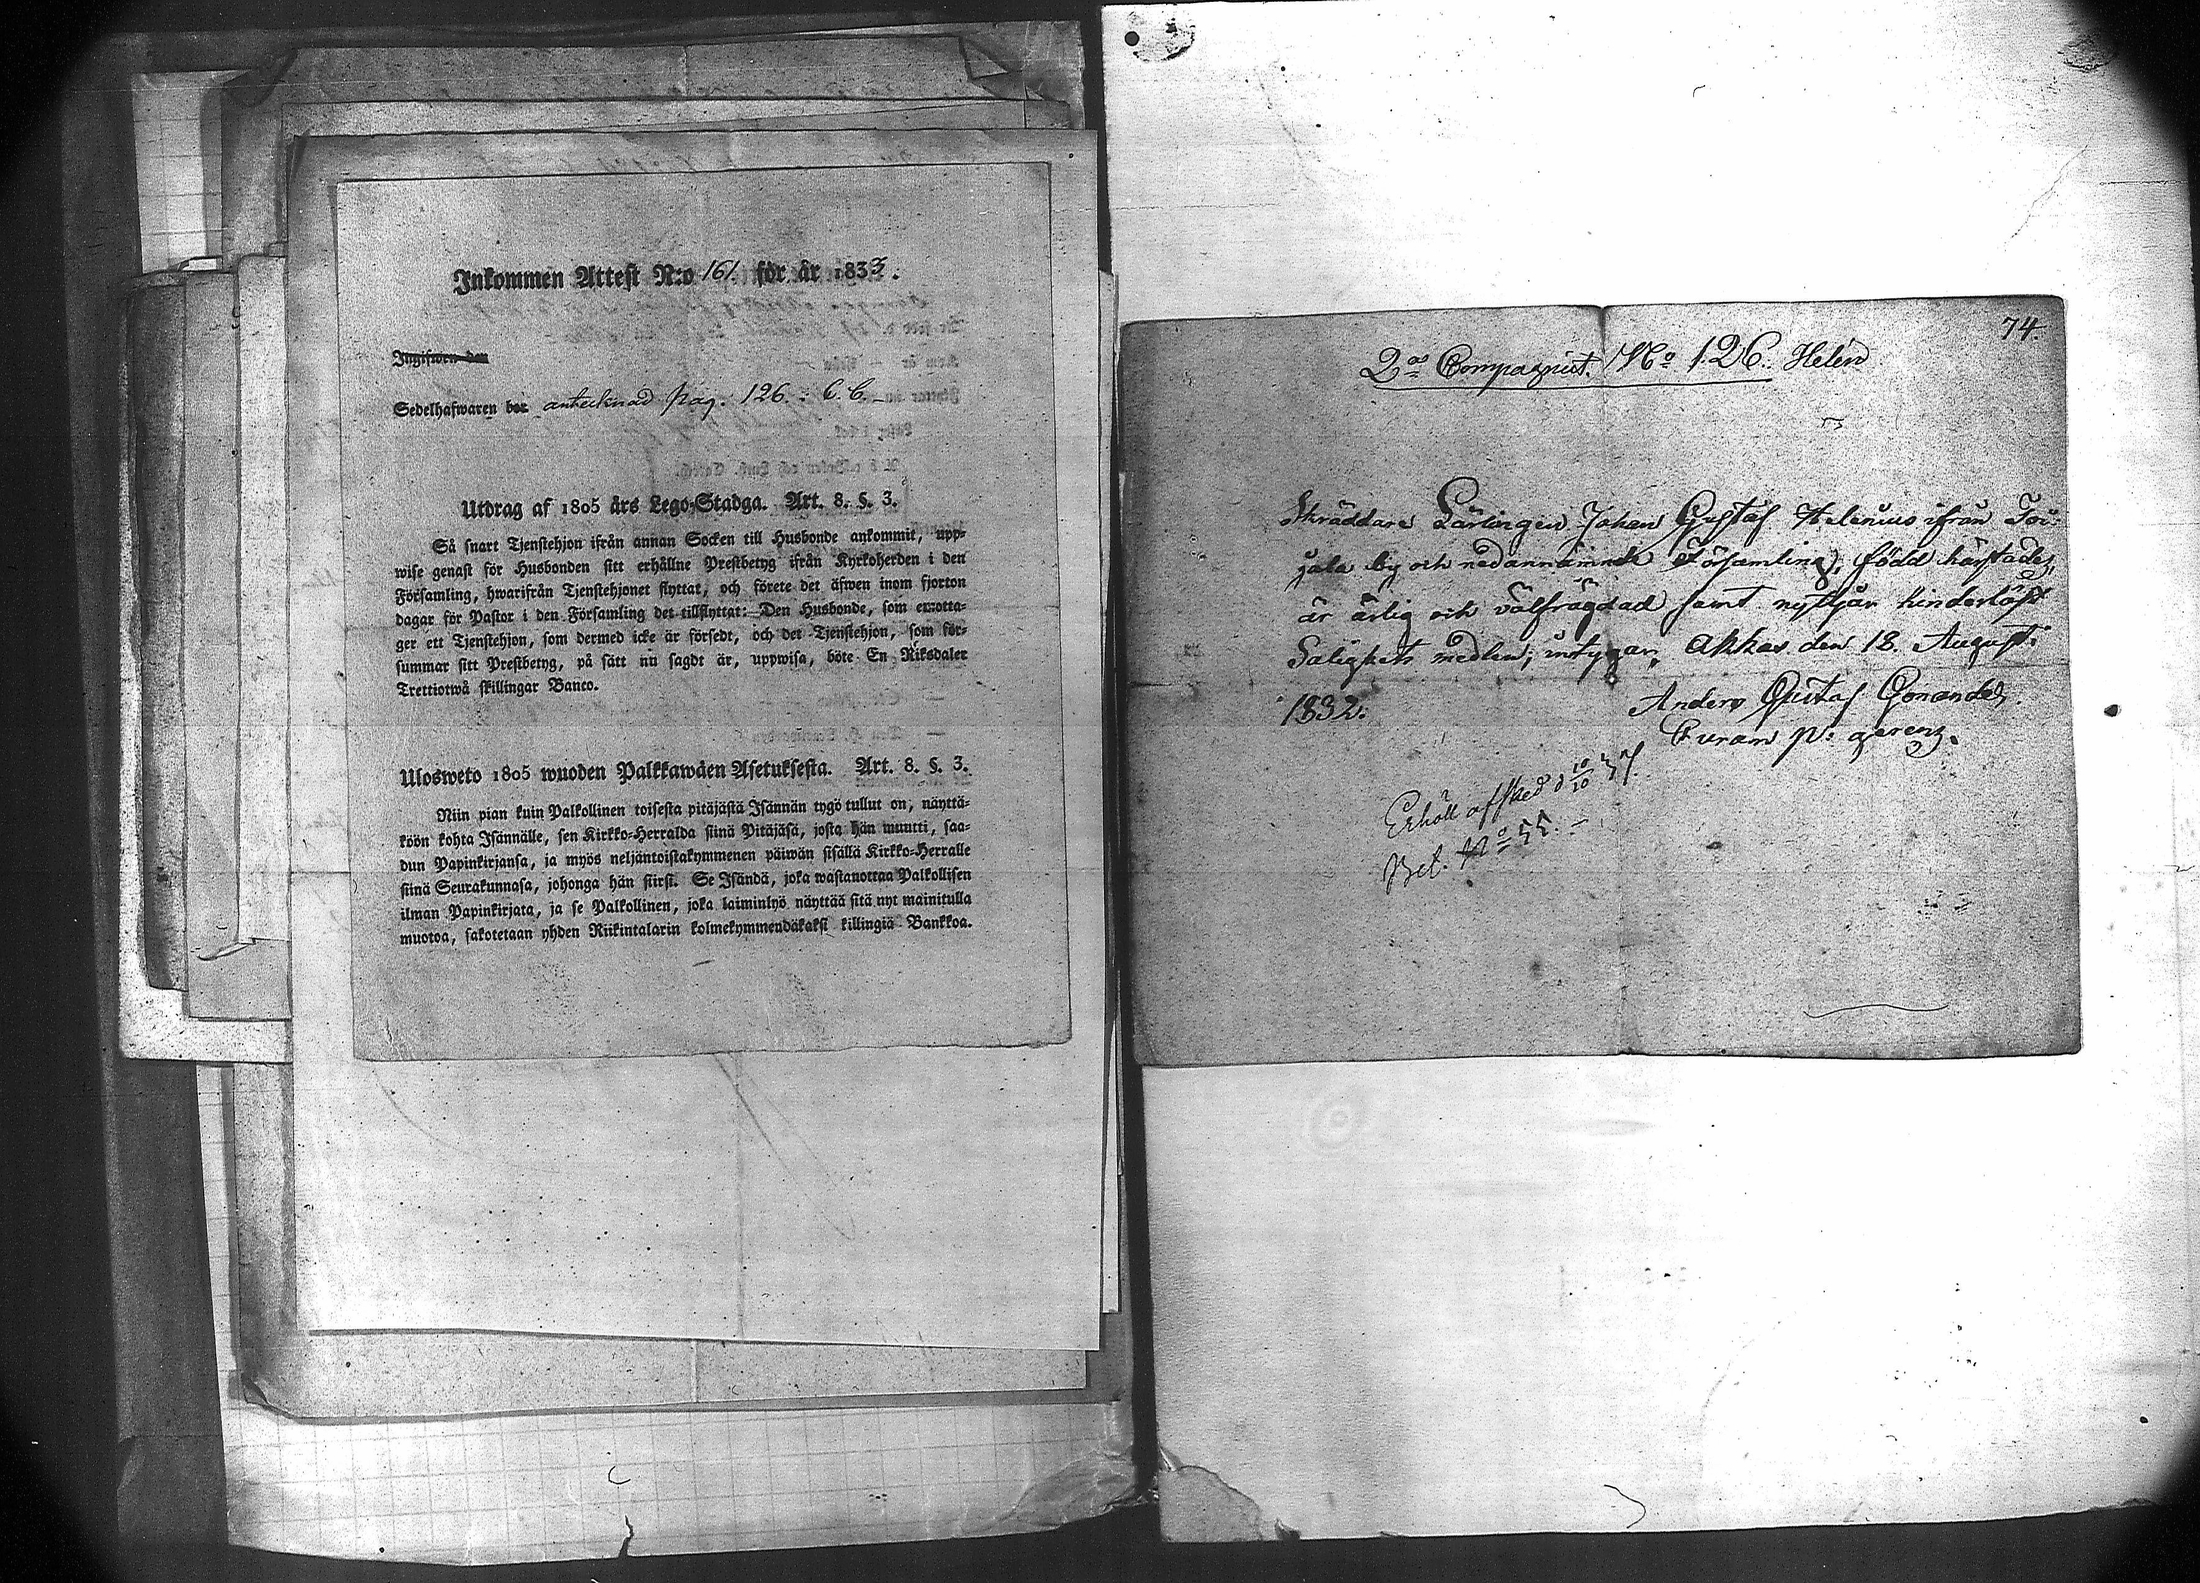 Inkommen Attest N:o 161. för år 1833.
Ingifwen den
Sedelhafwaren bor antecknad pag. 126. C. C.
Utdrag af 1805 års Lego-Stadga. Art. 8. §. 3.
Så snart Tjenstehjon ifrån annan Socken till Husbonde ankommit, upp-
wise genast för Husbonden sitt erhållne Prestbetyg ifrån Kyrkoherden i den
Församling, hwarifrån Tjenstehjonet flyttat, och förete det äfwen inom fjorton
dagar för Pastor i den Församling det tillflyttat: Den Husbonde, som emotta-
ger ett Tjenstehjon, som dermed icke är försedt, och det Tjenstehjon, som för-
summar sitt Prestbetyg, på sätt nu sagdt är, uppwisa, böte En Riksdaler
Trettiotwå skillingar Banco.
Ulosweto 1805 wuoden Palkkawäen Asetuksesta. Art. 8. §. 3.
Niin pian kuin Palkollinen toisesta pitäjästä Isännän tygö tullut on, näyttä-
köön kohta Isännälle, sen Kirkko-Herralda siinä Pitäjäsä, josta hän muutti, saa-
dun Papinkirjansa, ja myös neljäntoistakymmenen päiwän sisällä Kirkko-Herralle
siinä Seurakunnasa, johonga hän siirsi. Se Isändä, joka wastanottaa Palkollisen
ilman Papinkirjata, ja se Palkollinen, joka laiminlyö näyttää sitä nyt mainitulla
muotoa, sakotetaan yhden Riikintalarin kolmekymmendäkaksi killingiä Bankkoa.
74.
2as Compagniet. No 126. Helén
Skräddare Lärlingen Johan Gustaf Helenius ifrån Toi-
jala by och nedannämnde Församling, född härstädes,
är ärlig och välfrägdad samt nyttjar hinderlöst
Salighets medlen; intygar, Akkas den 18. Augusti
1832.
Anders Gustaf Gonander.
Curam p: gerens.
Erhöll afsked d 10/10 37.
Bet. No 55.